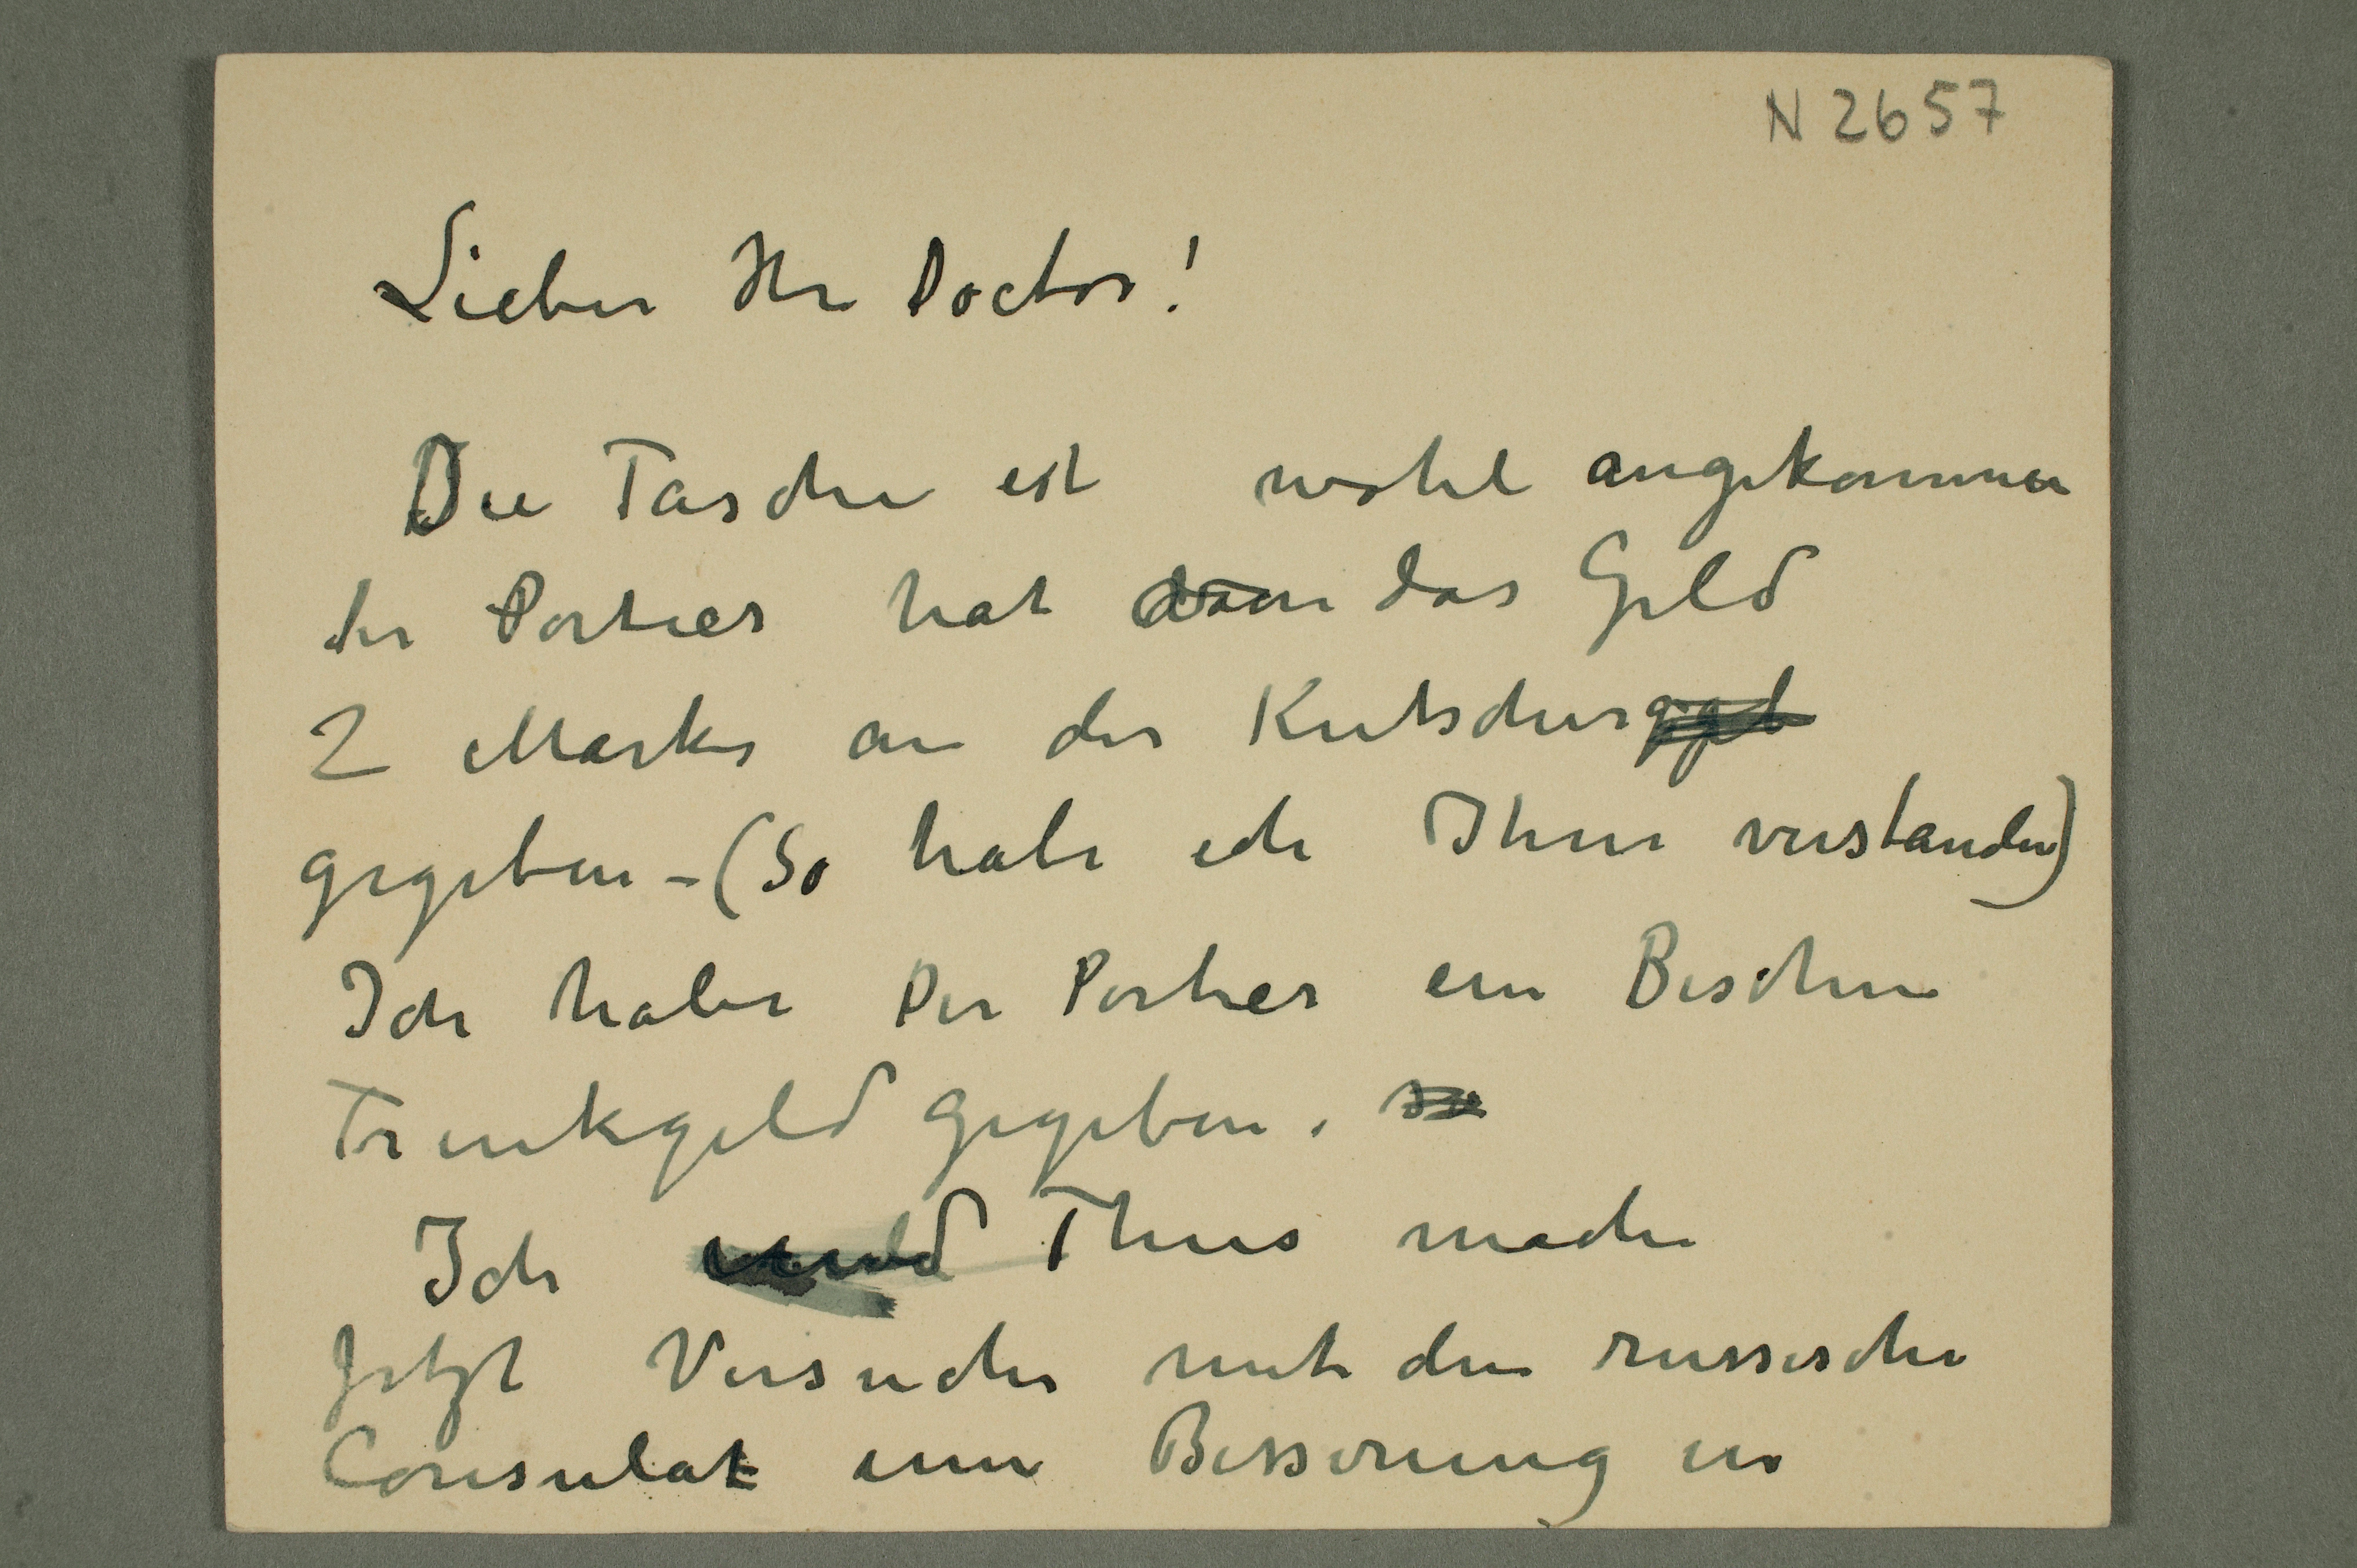 N 2657
Lieber Hr Doctor!
Die Tasche ist wohl angekommen
der Portier hat das Geld
2 Marks an der Kutscher
gegeben – (So habe ich Ihm verstanden)
Ich habe Der Portier ein Bischen
Trinkgeld gegeben.
Ich mache
Jetzt Versuche mit dem russische
Consulat um Besserung in